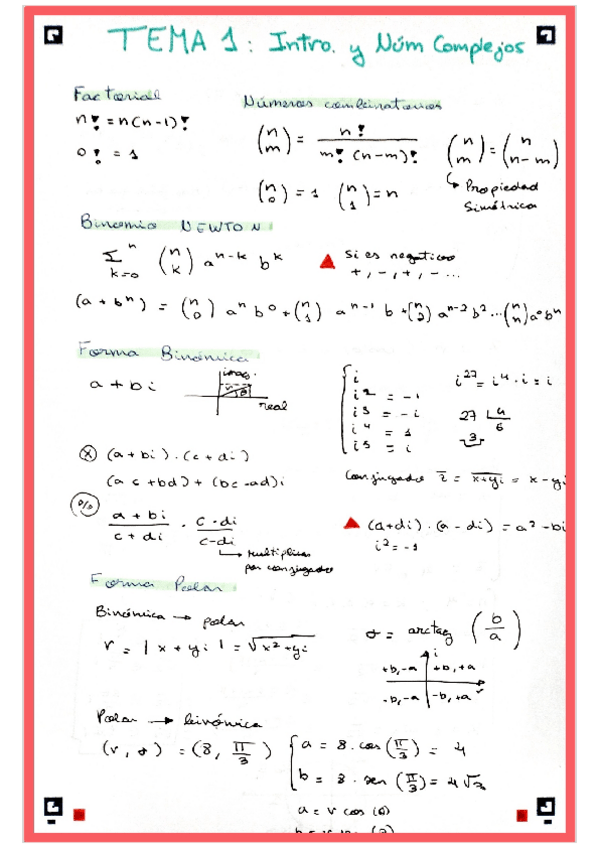 TEMA 1: Intro. y Núm Complejos
Factorial
n! = n(n-1)!
0! = 1
Números combinatorios
(n m) = n! / m! (n-m)!
(n m) = (n n-m)
↳ Propiedad Simétrica
(n 0) = 1 (n 1) = n
Binomio NEWTON:
Σ n k=0 (n k) a^n-k b^k
▲ Si es negativo
+, -, +, - ...
(a + b^n) = (n 0) a^n b^0 + (n 1) a^n-1 b + (n 2) a^n-2 b^2 ... (n n) a^0 b^n
Forma Binómica:
a + bi
imag.
real
i
i^2 = -1
i^3 = -i
i^4 = 1
i^5 = i
i^27 = i^4 · i = i
27 4
3 6
(a + bi) · (c + di)
(ac + bd) + (bc - ad)i
Conjugado z̅ = x+yi = x - yi
a + bi / c + di · c · di / c-di
↳ Multiplicas por conjugado
▲ (a+di) · (a - di) = a^2 - bi
i^2 = -1
Forma Polar:
Binómica → polar
r = |x + yi| = √x^2 + yi
σ = arctag (b/a)
i
+b,-a +b,+a
-b,-a -b,+a
r
Polar → binómica
(r, σ) = (8, π/3)
a = 8 · cos (π/3) = 4
b = 8 · sen (π/3) = 4√3
a = r cos (θ)